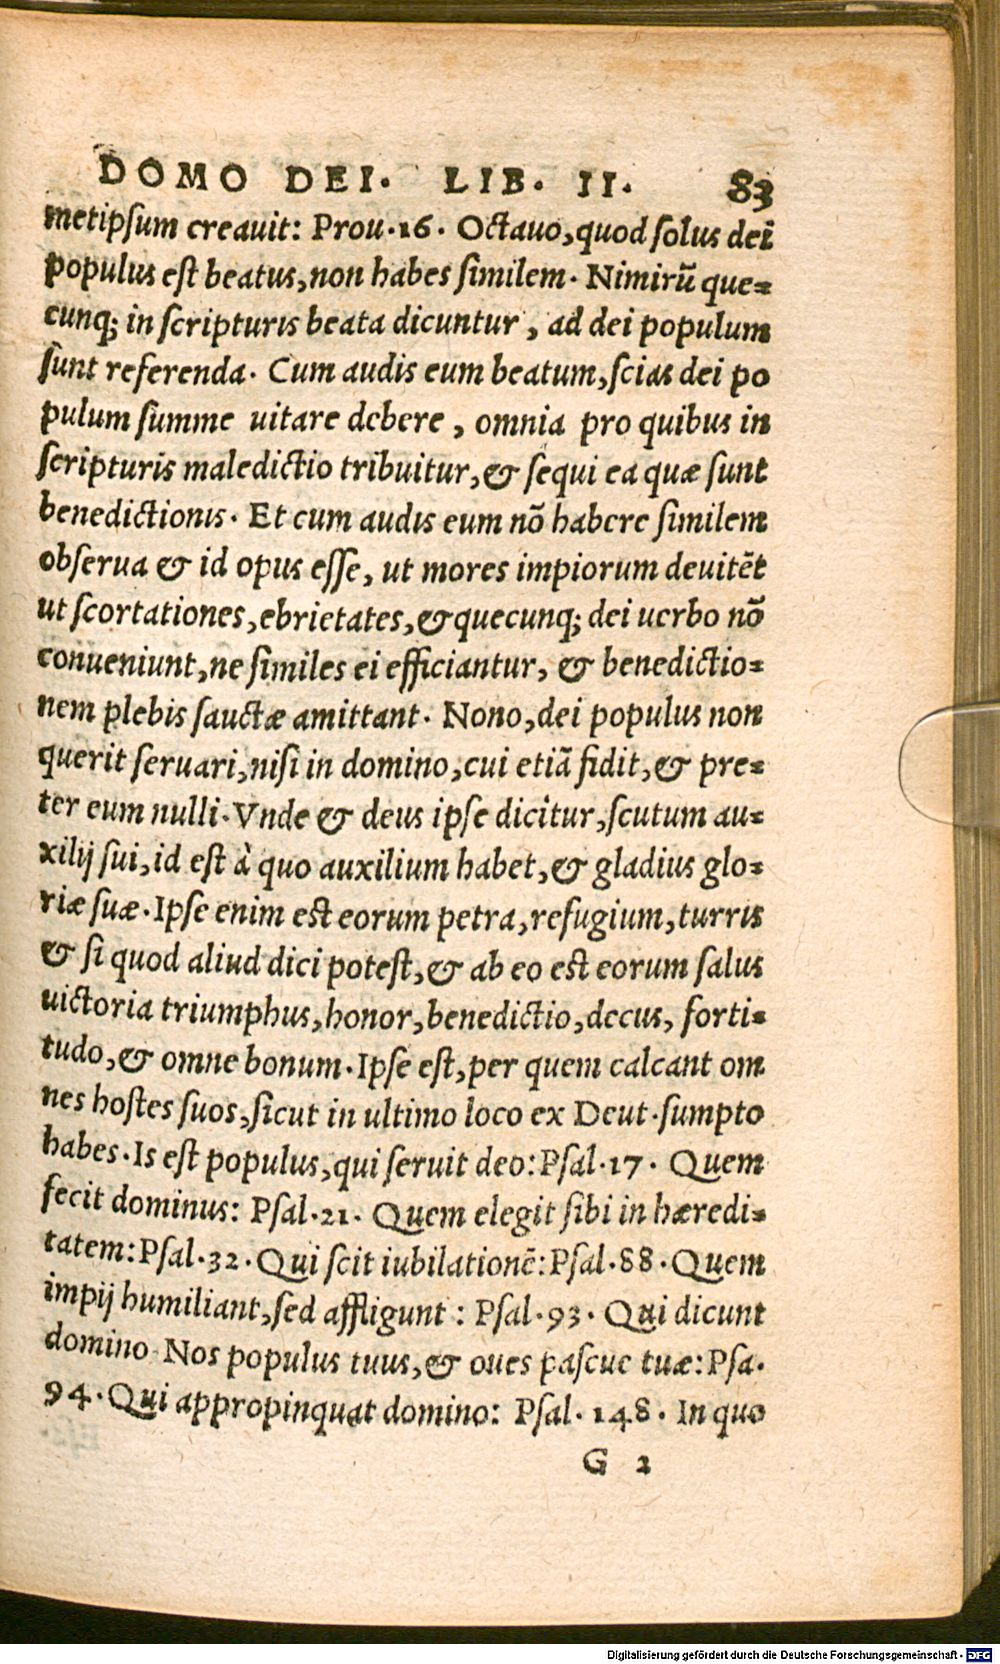 DOMO DEI. LIB. II. 83
metipsum creauit: Prou.16. Octauo, quod solus dei
populus est beatus, non habes similem. Nimirũ que-
cunq; in scripturis beata dicuntur, ad dei populum
sunt referenda. Cum audis eum beatum, scias dei po
pulum summe uitare debere, omnia pro quibus in
scripturis maledictio tribuitur, & sequi ea quæ sunt
benedictionis. Et cum audis eum nõ habere similem
obserua & id opus esse, ut mores impiorum deuitẽt
ut scortationes, ebrietates, & quecunq; dei uerbo nõ
conueniunt, ne similes ei efficiantur, & benedictio-
nem plebis sauctæ amittant. Nono, dei populus non
querit seruari, nisi in domino, cui etiã fidit, & pre-
ter eum nulli. Vnde & deus ipse dicitur, scutum au-
xilij sui, id est à quo auxilium habet, & gladius glo-
riæ suæ. Ipse enim est eorum petra, refugium, turris
& si quod aliud dici potest, & ab eo est eorum salus
uictoria triumphus, honor, benedictio, decus, forti-
tudo, & omne bonum. Ipse est, per quem calcant om
nes hostes suos, sicut in ultimo loco ex Deut. sumpto
habes. Is est populus, qui seruit deo: Psal.17. Quem
fecit dominus: Psal.21. Quem elegit sibi in hæredi-
tatem: Psal.32. Qui scit iubilationẽ: Psal.88. Quem
impij humiliant, sed affligunt: Psal.93. Qui dicunt
domino Nos populus tuus, & oues pascue tuæ: Psa.
94. Qui appropinquat domino: Psal. 148. In quo
G 2
Digitalisierung gefördert durch die Deutsche Forschungsgemeinschaft - DFG